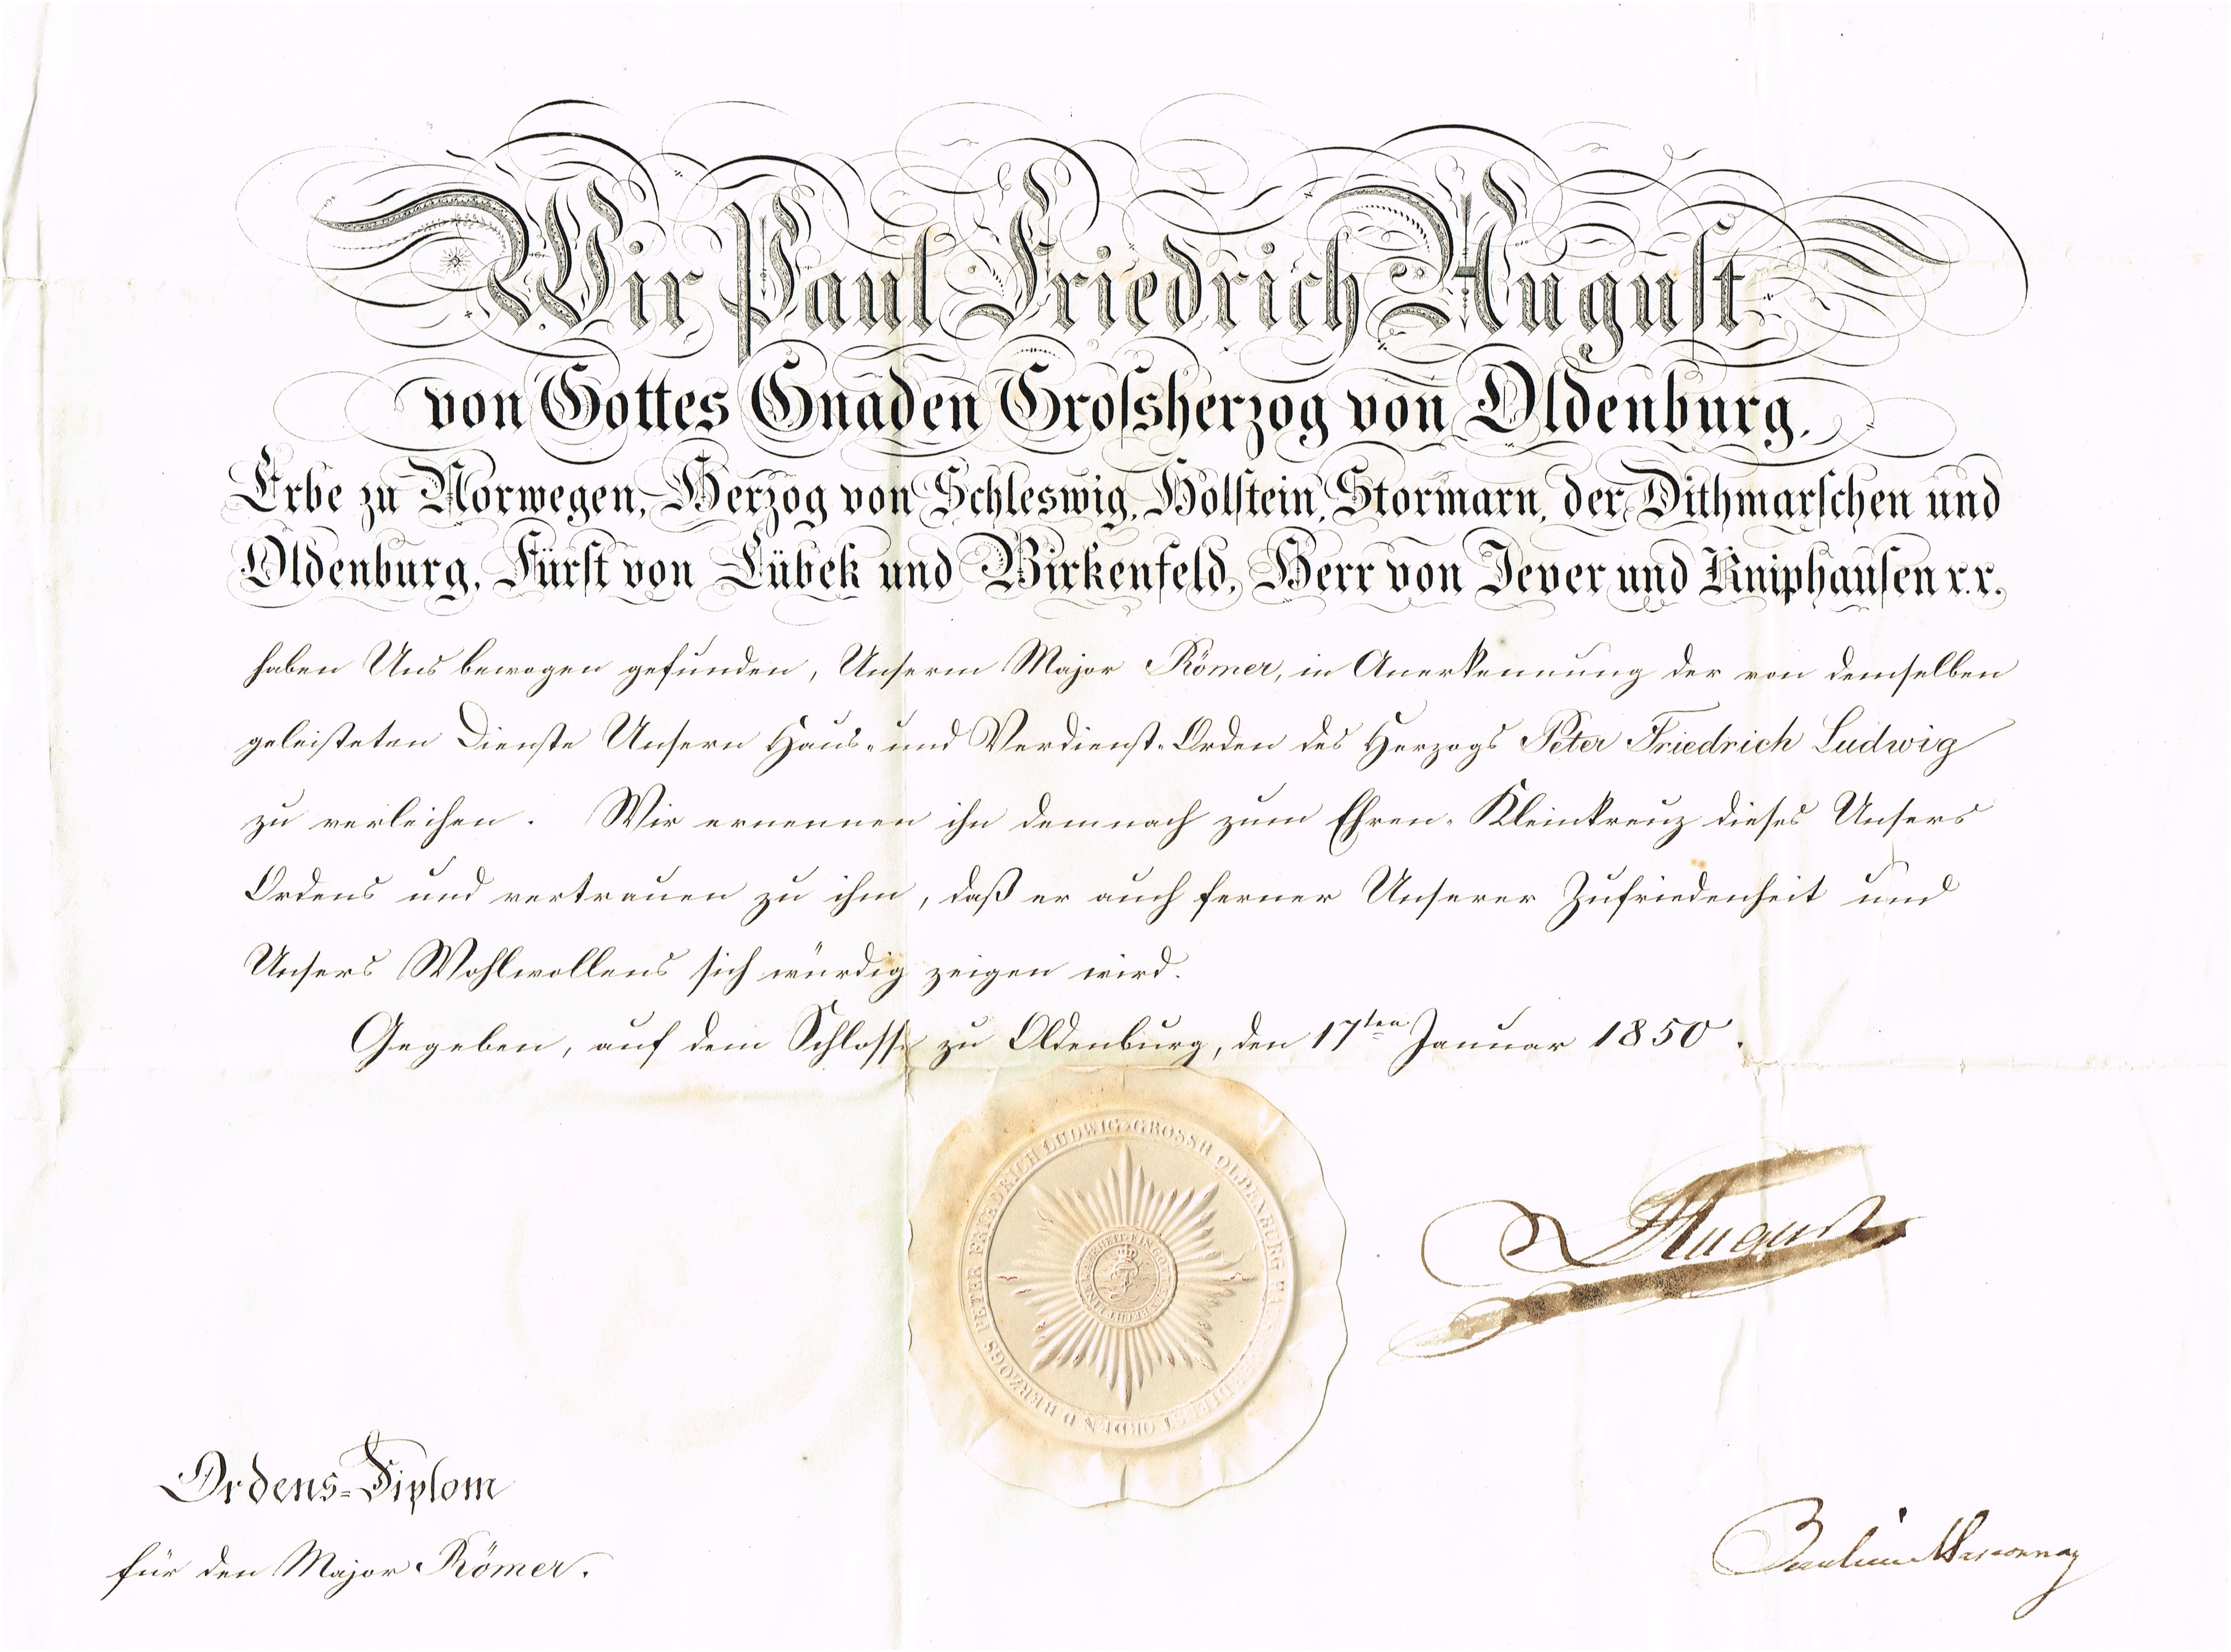 Wir Paul Friedrich August
von Gottes Gnaden Grossherzog von Oldenburg,
Erbe zu Norwegen, Herzog von Schleswig, Holstein, Stormarn, der Dithmarschen und
Oldenburg, Fürst von Lübek und Birkenfeld, Herr von Jever und Kniphausen r. r.
haben Uns bewogen gefunden, Unserm Major Römer, in Anerkennung der von demselben
geleisteten Dienste Unsern Haus- und Verdienst-Orden des Herzogs Peter Friedrich Ludwig
zu verleihen. Wir ernennen ihn demnach zum Ehren-Kleinkreuz dieses Unsers
Ordens und vertrauen zu ihm, daß er auch ferner Unserer Zufriedenheit und
Unsers Wohlwollens sich würdig zeigen wird.
Gegeben, auf dem Schlosse zu Oldenburg, den 17ten Januar 1850.
PETER FRIEDRICH LUDWIG GROSSH OLDENBURG ORDEN D HERZOGS
EIN GOTT EIN
August
Ordens-Diplom
für den Major Römer.